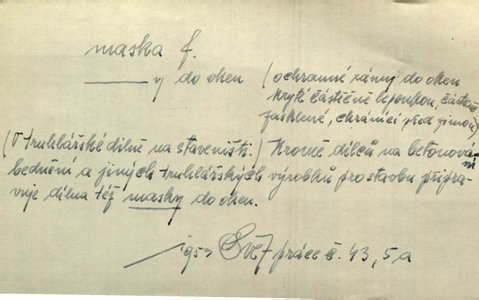 maska f.
——— y do oken (ochranné rámy do oken
kryté částečně lepenkou, částečně
zasklené, chránící před zimou)
(V truhlářské dílně na staveništi.) Kromě dílců na betonová-
bednění a jiných truhlářských výrobků pro stavbu připra-
vuje dílna též masky do oken.
1953 práce č. 43, 5a